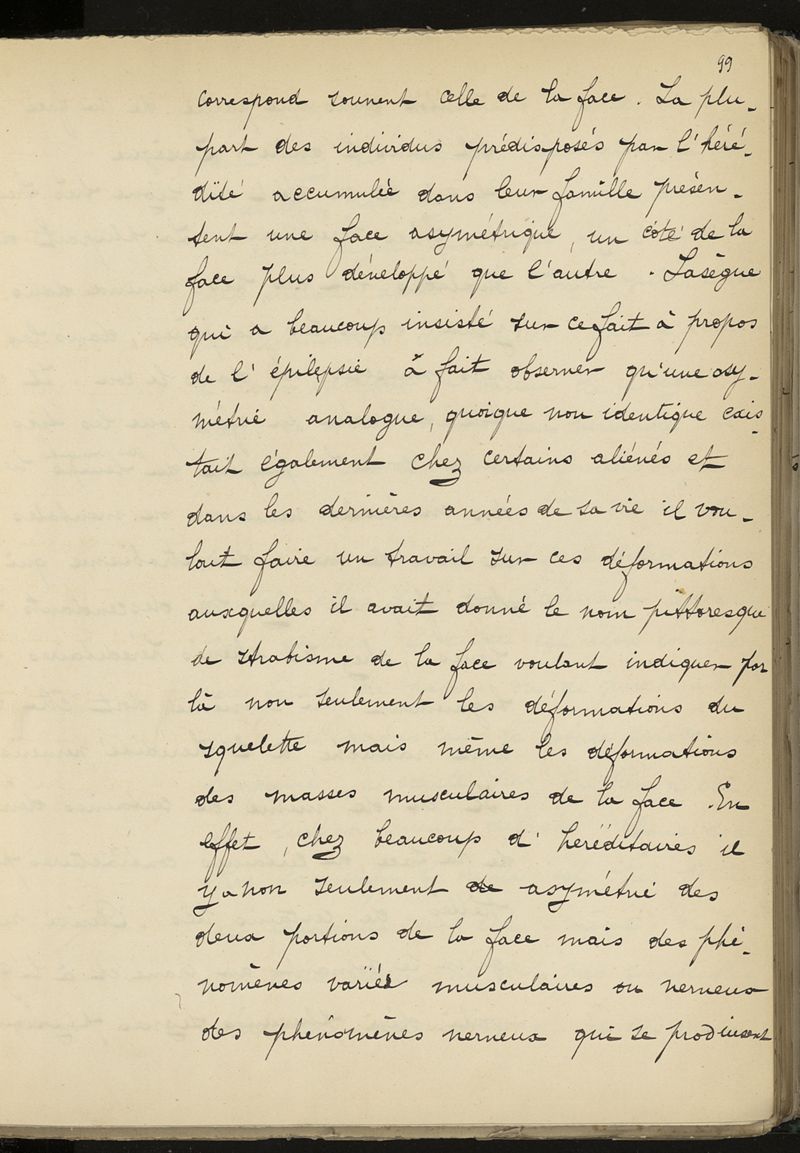 99
correspond souvent celle de la face. La plu-
part des individus prédisposés par l'héré-
dité accumulée dans leur famille présen-
tent une face asymétrique, un côté de la
face plus développé que l'autre. Lasègue
qui a beaucoup insisté sur ce fait à propos
de l'épilepsie a fait observer qu'une asy-
métrie analogue, quoique non identique exis-
tait également chez certains aliénés et
dans les dernières années de sa vie il vou-
lait faire un travail sur ces déformations
auxquelles il avait donné le nom pittoresque
de strabisme de la face voulant indiquer par
là non seulement les déformations du
squelette mais même les déformations
des masses musculaires de la face. En
effet, chez beaucoup d'héréditaires il
y a non seulement de asymétrie des
deux portions de la face mais des phé-
nomènes variés musculaires ou nerveux
des phénomènes nerveux qui se produisent